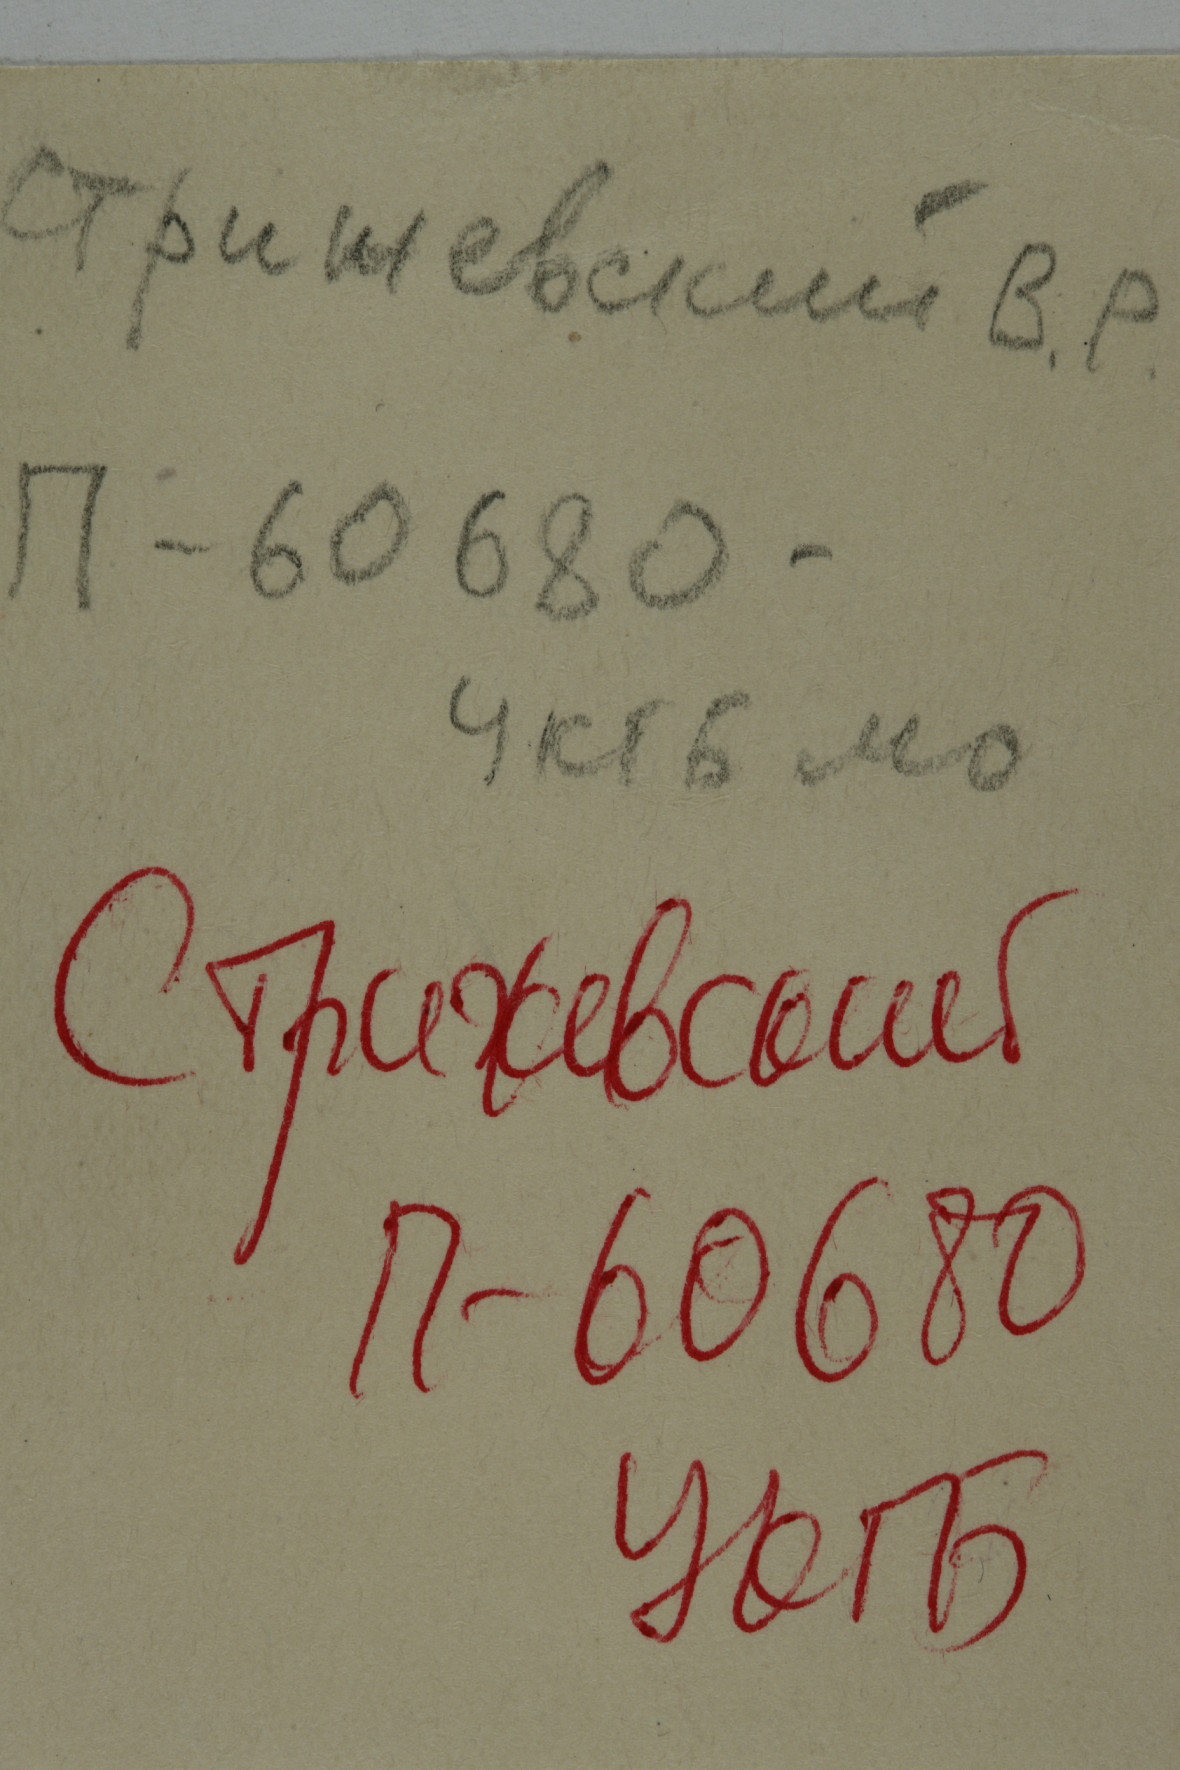 Стрижевский В.Р.
П-60680-
УКГБ МО
Стрижевский
П-60680
УКГБ